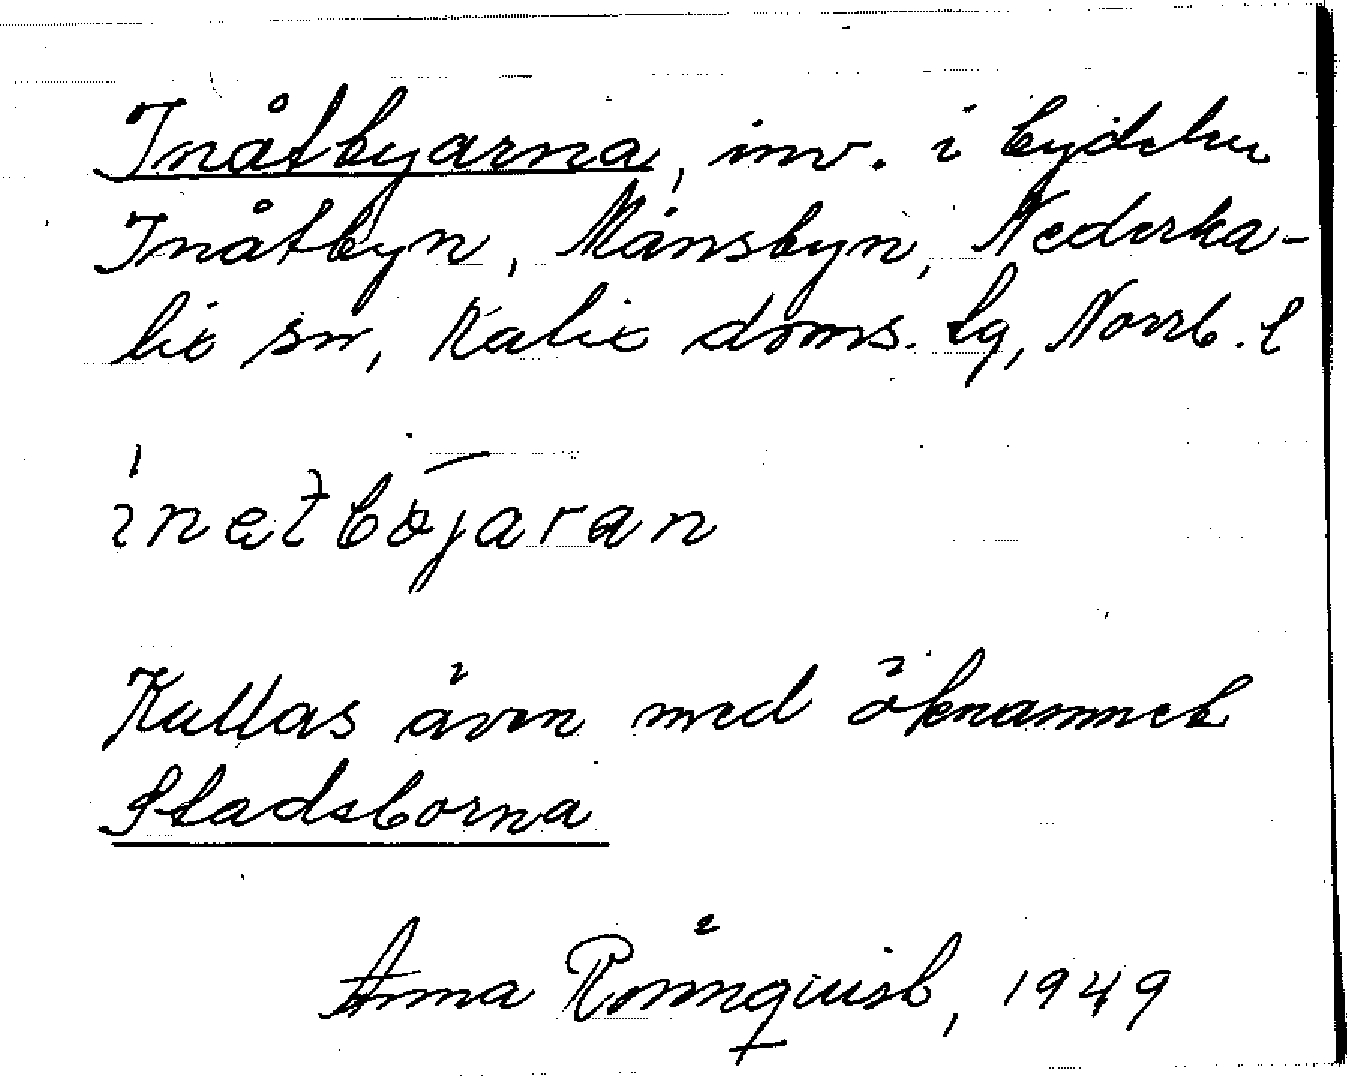 Inåtbyarna, inv. i bydelen
Inåtbyn, Månsbyn, Nederka-
lix sn, Kalix doms. lg, Norrb. l
inætbojaran
Kallas även med öknamnet
Stadsborna
Anna Rönnquist, 1949